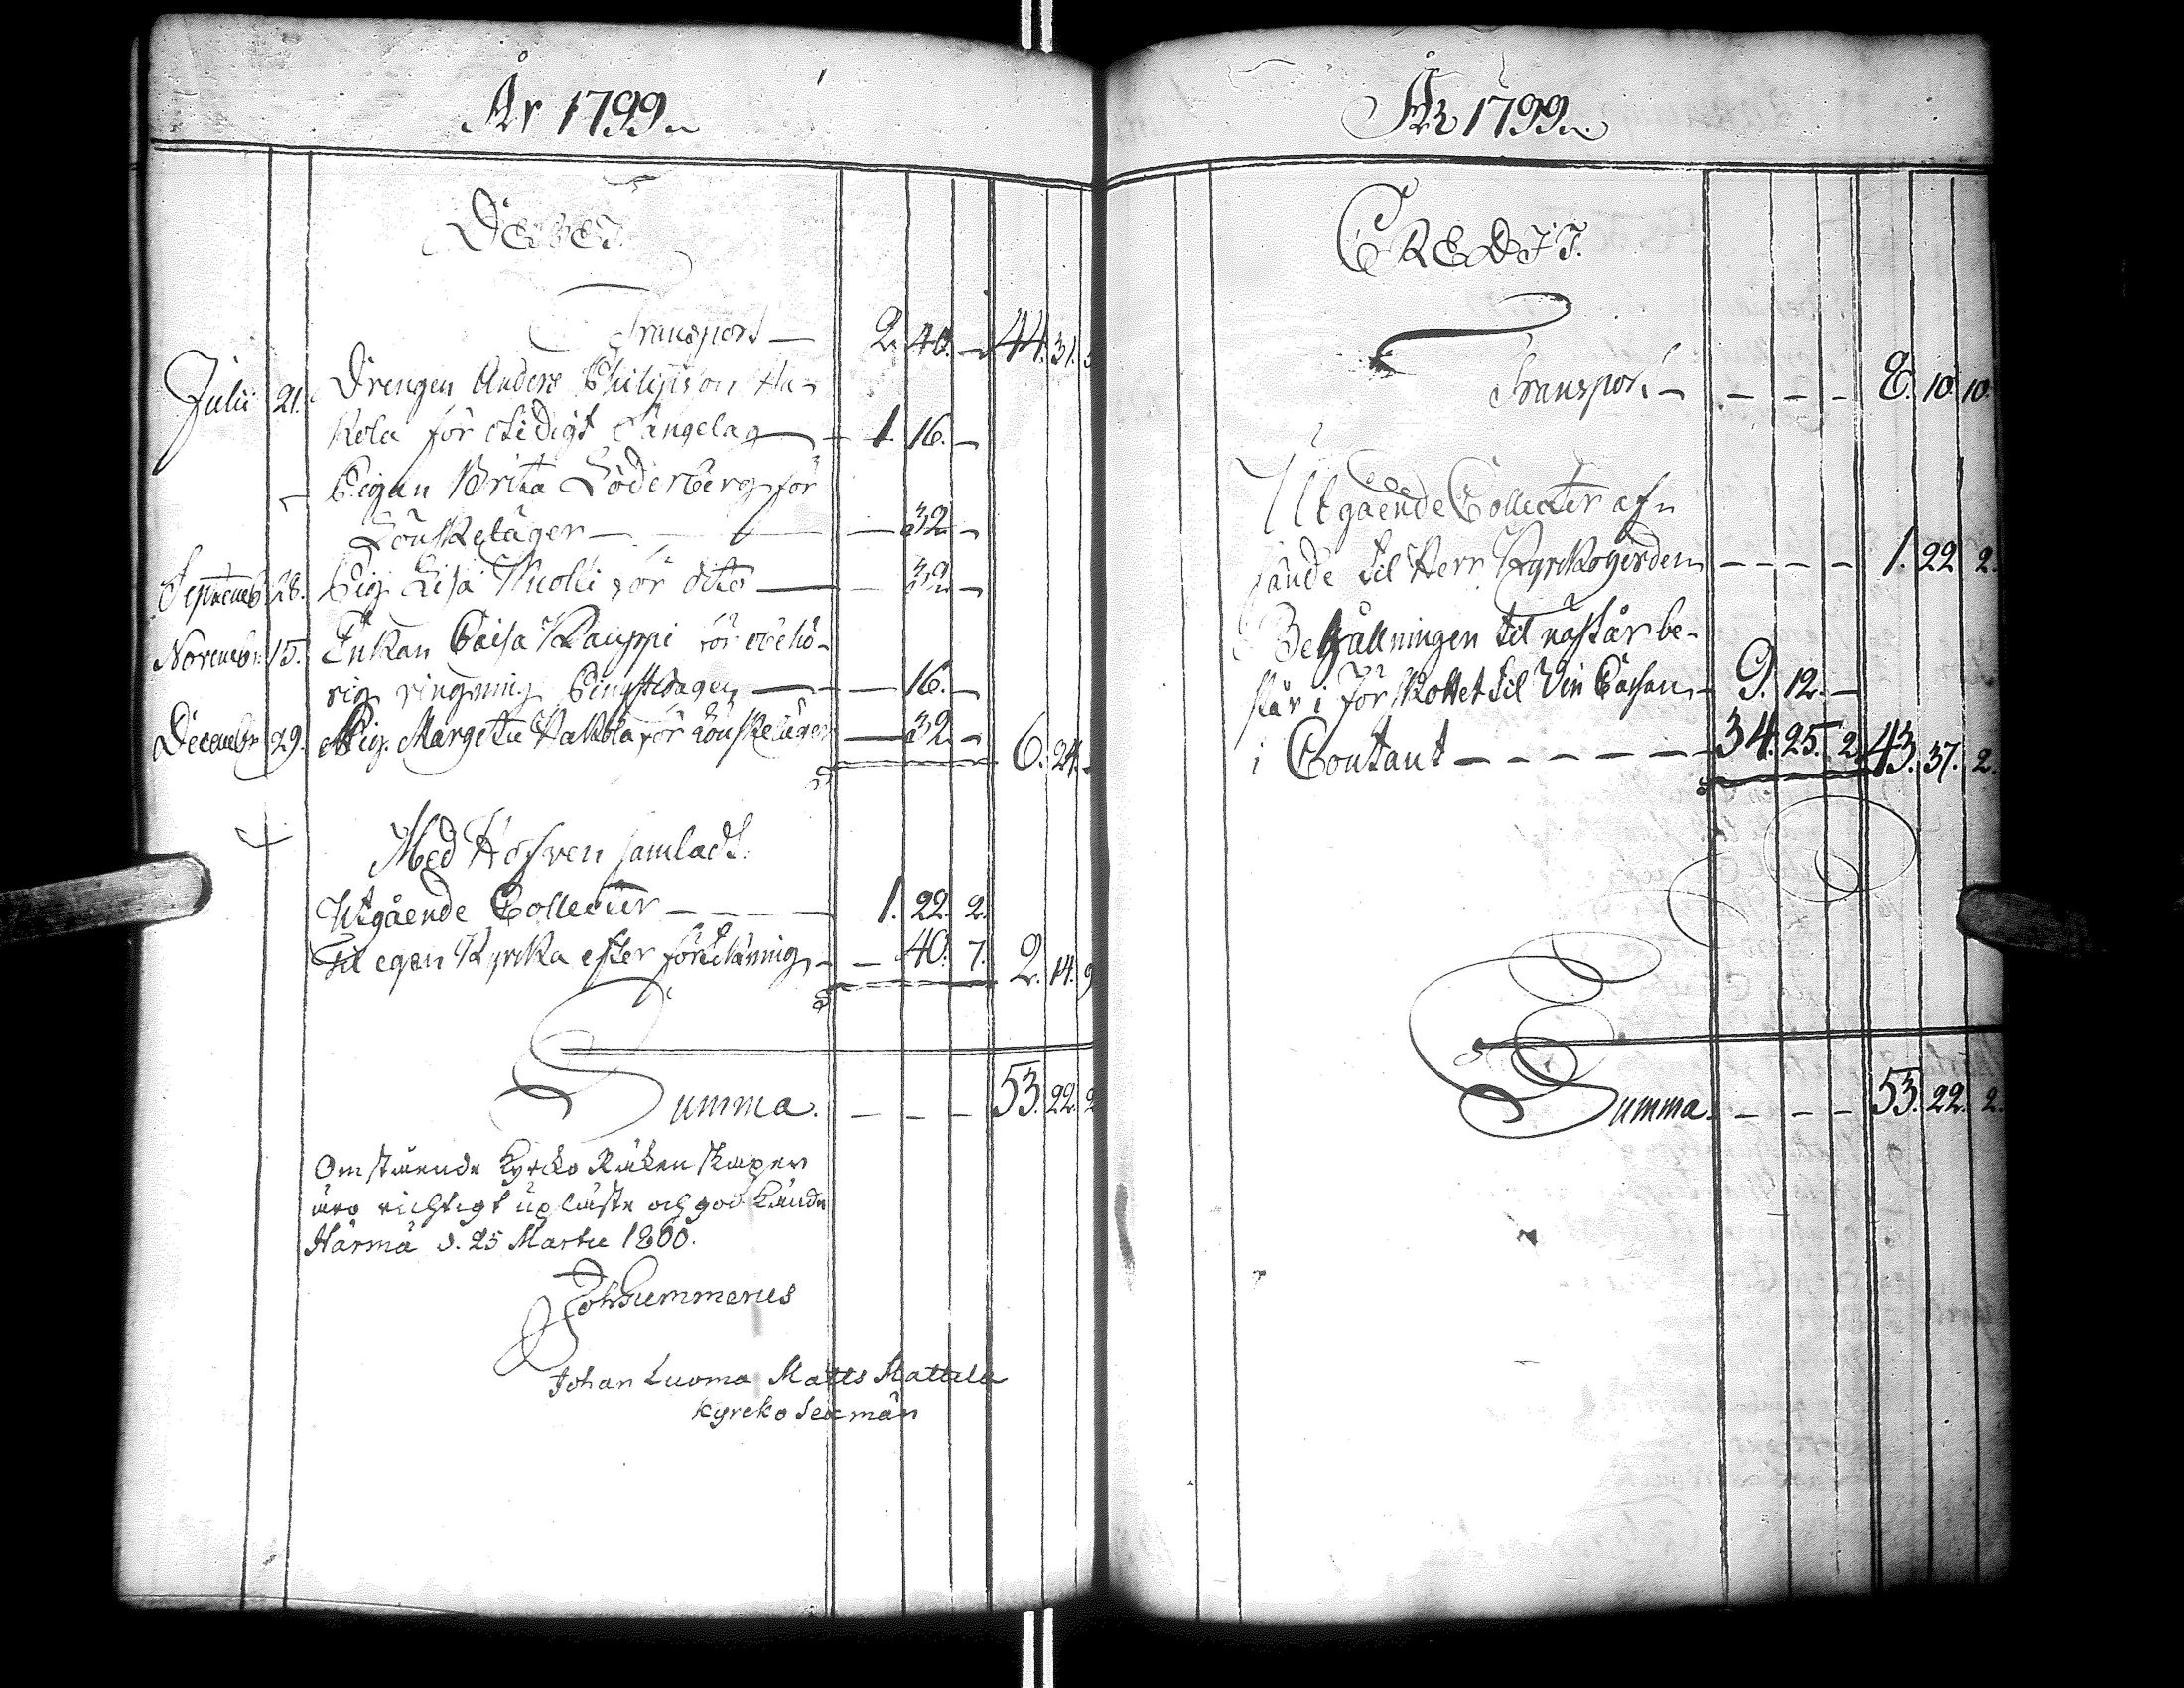 År 1799.
Debet.
Transport — 2. 40. — 44. 31.
Julii 21. Drengen Anders Philipsson Ha-
kola för otidigt Sängelag — 1. 16. —
Pigan Brita Söderberg för
Lönskeläger — 32 —
Septemb. 28. Pig. Lisa Kuolli för dito — 32 —
Novembr. 15. Enkan Caisa Kauppi för obehö-
rig ringning Pingstdagen — 16. —
Decembr. 29. Pig. Margeta Hakola för Lönskeläger — 32 — 6. 24. -
Med Håfven samladt.
Utgående Collecter — 1. 22. 2.
Til egen Kyrka efter förklaring — 40. 7. 2. 14. 9
Summa. — — — 53. 22. 2
Omstående Kyrcko Räkenskaper
äro richtigt upläste och godkände
Härmä d. 25 Martii 1800.
Joh Gummerus
Johan Luoma Matts Mattila
Kyrcko Sexmän
År 1799.
CREDIT.
Transport — — — — 8. 10. 10.
Utgående Collecter af-
sände til Herr Kyrkoherden — — — — 1. 22. 2.
Behållningen til näst år be-
står i förskottet til Vin Cassan — 9. 12. —
i Contant — — — — — 34. 25. 2. 43. 37. 2.
Summa. — — — 53. 22. 2.